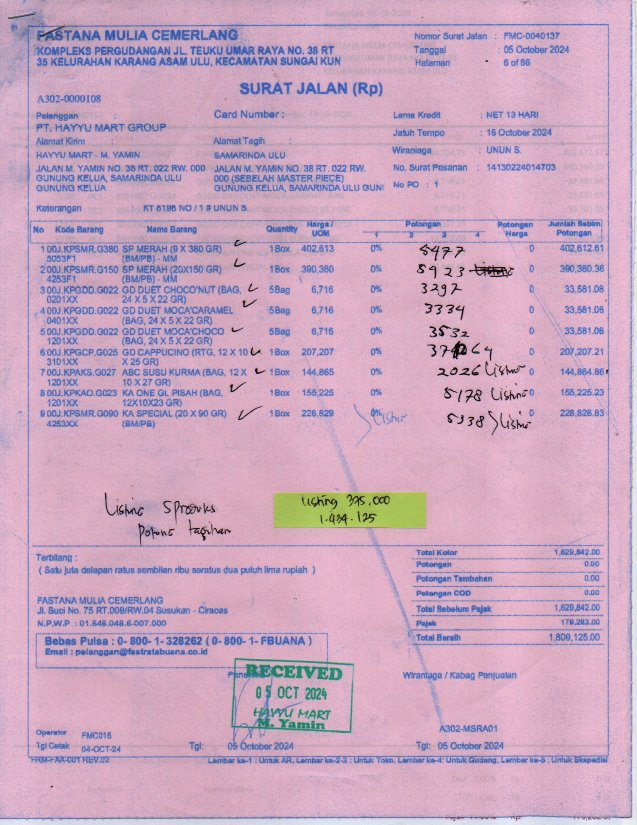 FASTANA MULIA CEMERLANG
KOMPLEKS PERGUDANGAN JL. TEUKU UMAR RAYA NO. 38 RT
35 KELURAHAN KARANG ASAM ULU, KECAMATAN SUNGAI KUN
Nomor Surat Jalan : FMC-0040137
Tanggal : 05 October 2024
Halaman : 6 of 66
SURAT JALAN (Rp)
A302-0000108
Pelanggan :
PT. HAYYU MART GROUP
Card Number :
Lama Kredit : NET 13 HARI
Jatuh Tempo : 18 October 2024
Alamat Kirim :
Alamat Tagih :
Wiraniaga : UNUN S.
HAYYU MART - M. YAMIN
SAMARINDA ULU
JALAN M. YAMIN NO. 38 RT. 022 RW. 000
GUNUNG KELUA, SAMARINDA ULU
GUNUNG KELUA
JALAN M. YAMIN NO. 38 RT. 022 RW.
000 (SEBELAH MASTER PIECE)
GUNUNG KELUA, SAMARINDA ULU GUNI
No. Surat Pesanan : 14130224014703
No PO : 1
Keterangan : KT 8196 NO / 1 # UNUN S.
No Kode Barang Nama Barang Quantity Harga / UOM Potongan 1 2 3 4 Potongan Harga Jumlah Seblm. Potongan
1 00J.KPSMR.G380 SP MERAH (9 X 380 GR) 1Box 402,613 0% 5477 0 402,612.61
5053F1 (BM/PB) - MM
2 00J.KPSMR.G150 SP MERAH (20X150 GR) 1Box 390,360 0% 5923 0 390,360.36
4253F1 (BM/PB) - MM
3 00J.KPGDD.G022 GD DUET CHOCO'NUT (BAG, 5Bag 6,716 0% 3297 0 33,581.08
0201XX 24 X 5 X 22 GR)
4 00J.KPGDD.G022 GD DUET MOCA'CARAMEL 5Bag 6,716 0% 3334 0 33,581.08
0401XX (BAG, 24 X 5 X 22 GR)
5 00J.KPGDD.G022 GD DUET MOCA'CHOCO 5Bag 6,716 0% 3532 0 33,581.08
1201XX (BAG, 24 X 5 X 22 GR)
6 00J.KPGCP.G025 GD CAPPUCINO (RTG, 12 X 10 1Box 207,207 0% 0 207,207.21
3101XX X 25 GR)
7 00J.KPAKS.G027 ABC SUSU KURMA (BAG, 12 X 1Box 144,865 0% 2026 Listing 0 144,864.86
1201XX 10 X 27 GR)
8 00J.KPKAO.G023 KA ONE GL PISAH (BAG, 1Box 155,225 0% 5178 Listing 0 155,225.23
1201XX 12X10X23 GR)
9 00J.KPSMR.G090 KA SPECIAL (20 X 90 GR) 1Box 228,829 0% Listing 5338 Listing 0 228,828.83
4253XX (BM/PB)
Listing 5 produks
Potong tagihan
Listing 375,000
1.434.125
Terbilang :
( Satu juta delapan ratus sembilan ribu seratus dua puluh lima rupiah )
Total Kotor 1,629,842.00
Potongan 0.00
Potongan Tambahan 0.00
Potongan COD 0.00
Total Sebelum Pajak 1,629,842.00
Pajak 179,283.00
Total Bersih 1,809,125.00
FASTANA MULIA CEMERLANG
Jl. Suci No. 75 RT.008/RW.04 Susukan - Ciracas
N.P.W.P : 01.648.048.6-007.000
Bebas Pulsa : 0- 800- 1- 328262 ( 0- 800- 1- FBUANA )
Email : pelanggan@fastratabuana.co.id
Wiraniaga / Kabag Penjualan
RECEIVED
05 OCT 2024
HAYYU MART
M. Yamin
A302-MSRA01
Operator FMC015
Tgl Cetak 04-OCT-24
Tgl: 05 October 2024
Tgl: 05 October 2024
FRM-FAA-001 REV.02
Lembar ke-1 : Untuk AR, Lembar ke-2-3 : Untuk Toko, Lembar ke-4: Untuk Gudang, Lembar ke-5 : Untuk Ekspedisi